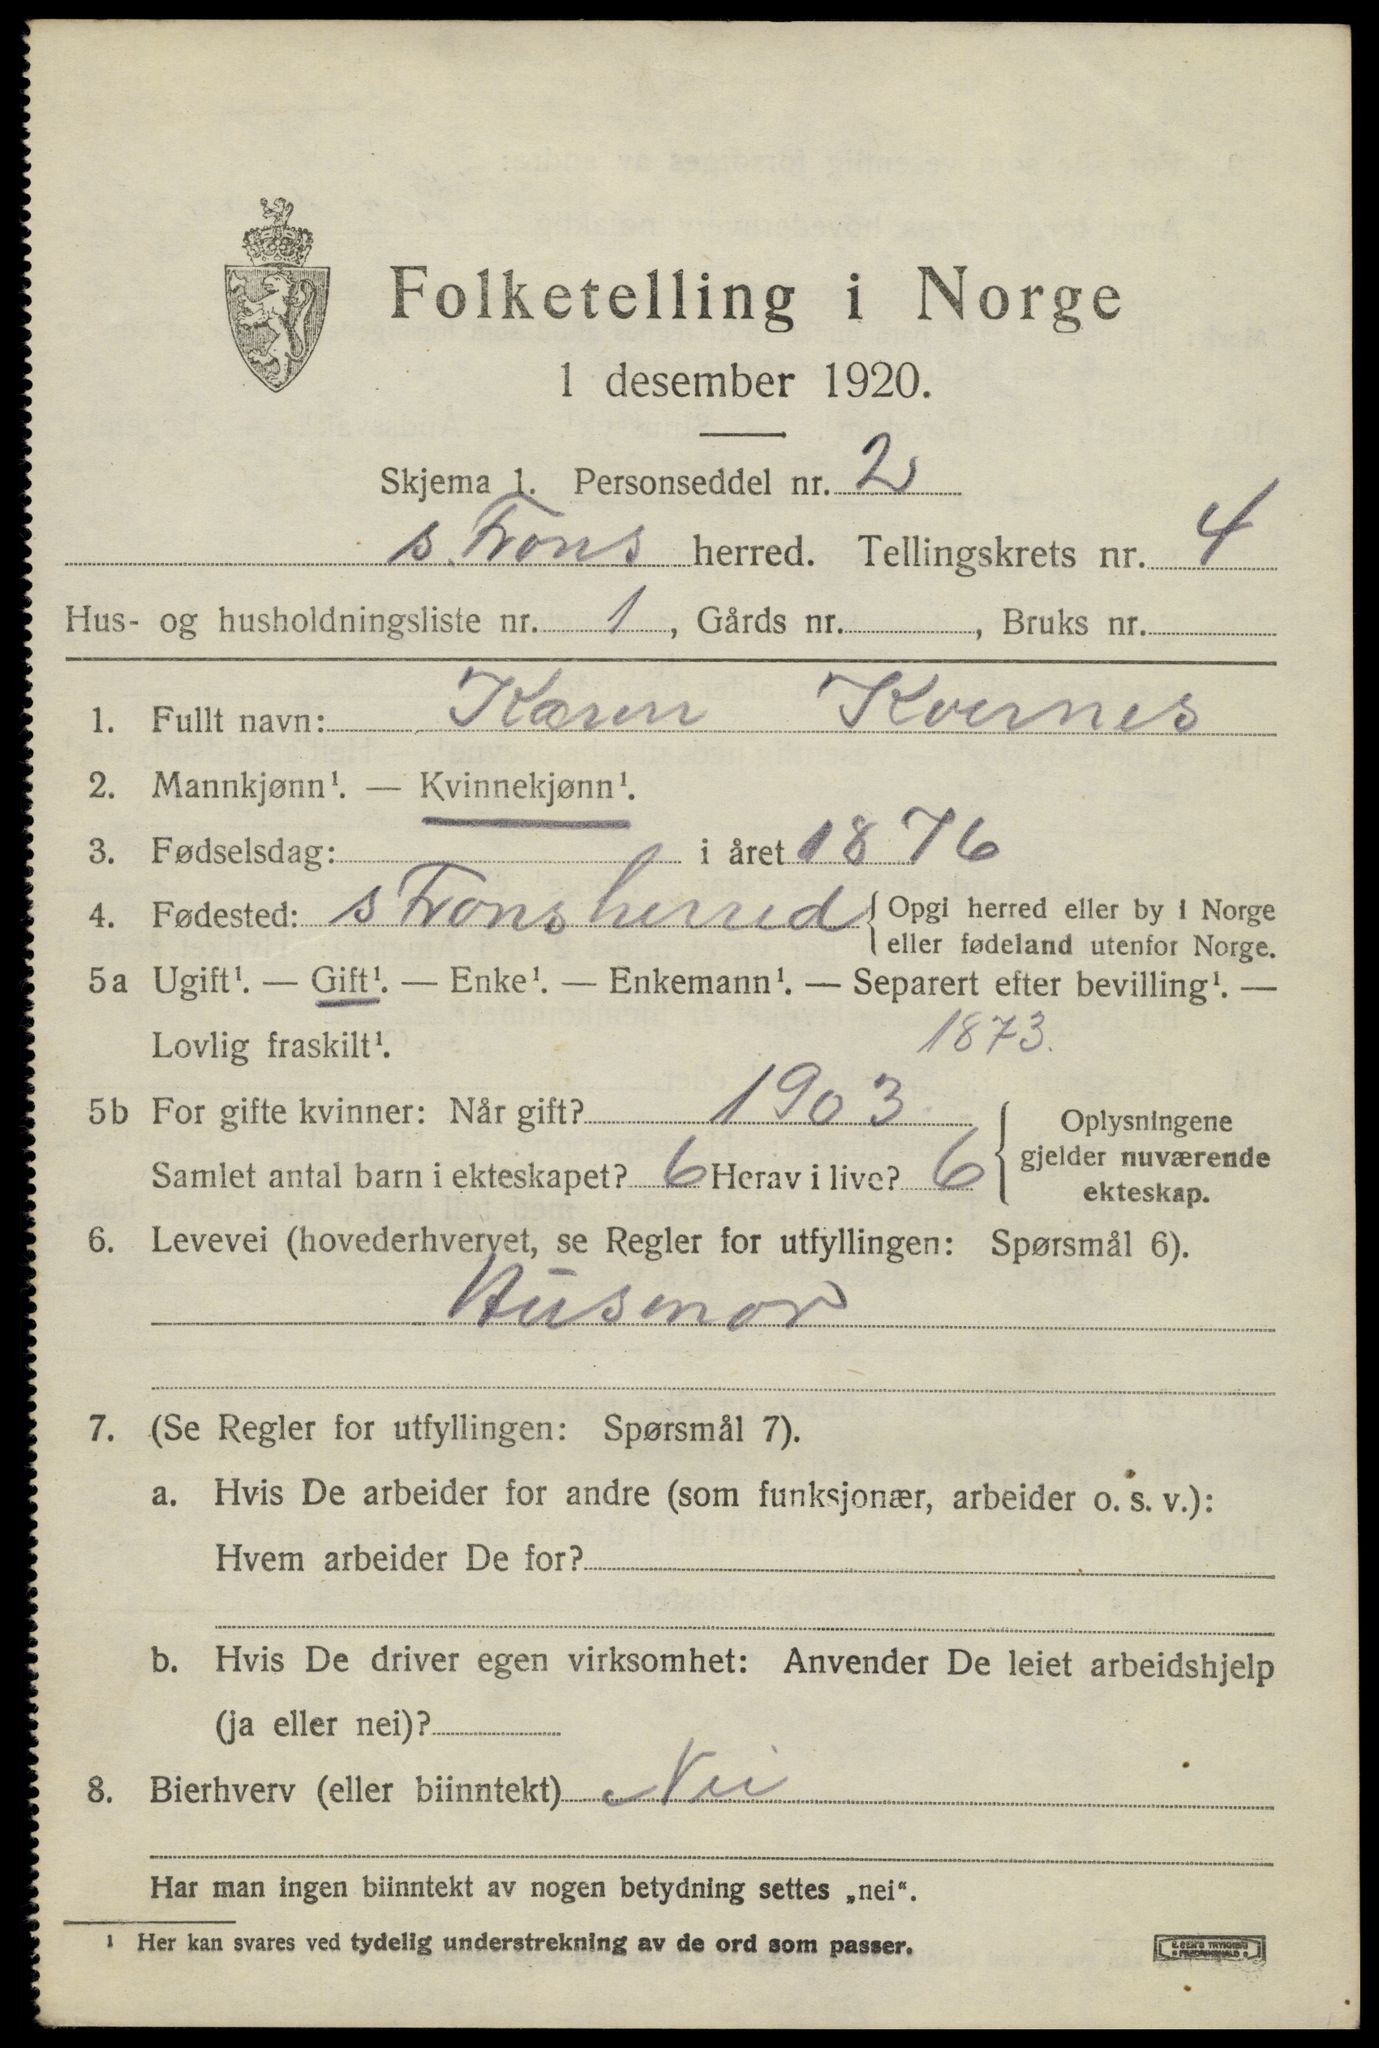 Folketelling i Norge
1 desember 1920.
Skjema 1. Personseddel nr. 2
s. Frons herred. Tellingskrets nr. 4
Hus- og husholdningsliste nr. 1, Gårds nr. , Bruks nr.
1. Fullt navn: Karen Kvernes
2. Mannkjønn¹. — Kvinnekjønn¹.
3. Fødselsdag: i året 1876
4. Fødested: s Frons herred { Opgi herred eller by i Norge
eller fødeland utenfor Norge.
5a Ugift¹. — Gift¹. — Enke¹. — Enkemann¹. — Separert efter bevilling¹. —
Lovlig fraskilt¹. 1873.
5b For gifte kvinner: Når gift? 1903
Samlet antal barn i ekteskapet? 6 Herav i live? 6
{ Oplysningene
gjelder nuværende
ekteskap.
6. Levevei (hovederhvervet, se Regler for utfyllingen: Spørsmål 6).
Husmor
7. (Se Regler for utfyllingen: Spørsmål 7).
a. Hvis De arbeider for andre (som funksjonær, arbeider o. s. v.):
Hvem arbeider De for?
b. Hvis De driver egen virksomhet: Anvender De leiet arbeidshjelp
(ja eller nei)?
8. Bierhverv (eller biinntekt) Nei
Har man ingen biinntekt av nogen betydning settes „nei“.
¹ Her kan svares ved tydelig understrekning av de ord som passer.